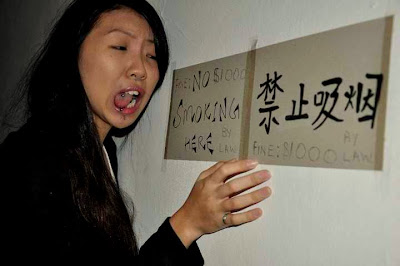 FINE: NO $1000
SMOKING
HERE BY LAW
禁止吸烟
FINE:$1000 BY LAW